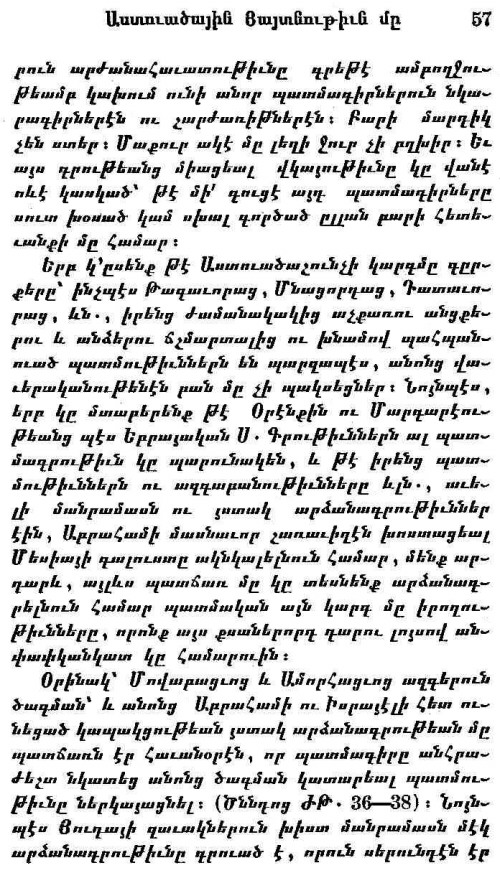 Աստուածային Յայտնութիւն մը 57
րուն արժանահաւատութիւնը գրեթէ ամբողջու-
թեամբ կախում ունի անոր պատմագիրներուն նկա-
րագիրներէն ու շարժառիթներէն։ Բարի մարդիկ
չեն ստեր։ Մաքուր ակէ մը լեղի ջուր չի բղխիր։ Եւ
այս գրութեանց միացեալ վկայութիւնը կը վանէ
ոևէ կասկած՝ թէ մի՛ գուցէ այդ պատմագիրները
սուտ խօսած կամ սխալ գործած ըլլան բարի հետե-
ւանքի մը համար։
Երբ կ'ըսենք թէ Աստուածաշունչի կարգմը գըր-
քերը՝ ինչպէս Թագաւորաց, Մնացորդաց, Դատաւո-
րաց, ևն․, իրենց ժամանակակից աչքառու անցքե-
րու և անձերու ճշմարտալից ու խնամով պահպան-
ուած պատմութիւններն են պարզապէս, անոնց վա-
ւերականութենէն բան մը չի պակսեցներ։ Նոյնպէս,
երբ կը մտաբերենք թէ Օրէնքին ու Մարգարէու-
թեանց պէս Եբրայական Ս․ Գրութիւններն ալ պատ-
մագրութիւն կը պարունակեն, և թէ իրենց պատ-
մութիւններն ու ազգաբանութիւնները ևլն․, աւե-
լի մանրամասն ու յստակ արձանագրութիւններ
էին, Աբրահամի մասնաւոր շառաւիղէն խոստացեալ
Մեսիայի գալուստը ակնկալելնուն համար, մենք ար-
դարև, այլևս պատճառ մը կը տեսնենք արձանագ-
րելնուն համար պատմական այն կարգ մը իրողու-
թիւնները, որոնք այս քսաներորդ դարու լոյսով ան-
փափկանկատ կը համարուին։
Օրինակ՝ Մովաբացւոց և Ամորհացւոց ազգերուն
ծագման՝ և անոնց Աբրահամի ու Իսրայէլի հետ ու-
նեցած կապակցութեան յստակ արձանագրութեան մը
պատճառն էր հաւանօրէն, որ պատմագիրը անհրա-
ժեշտ նկատեց անոնց ծագման կատարեալ պատմու-
թիւնը ներկայացնել։ (Ծննդոց ԺԹ․ 36—38)։ Նոյն-
պէս Յուդայի զաւակներուն խիստ մանրամասն մէկ
արձանագրութիւնը գրուած է, որուն սերունդէն էր